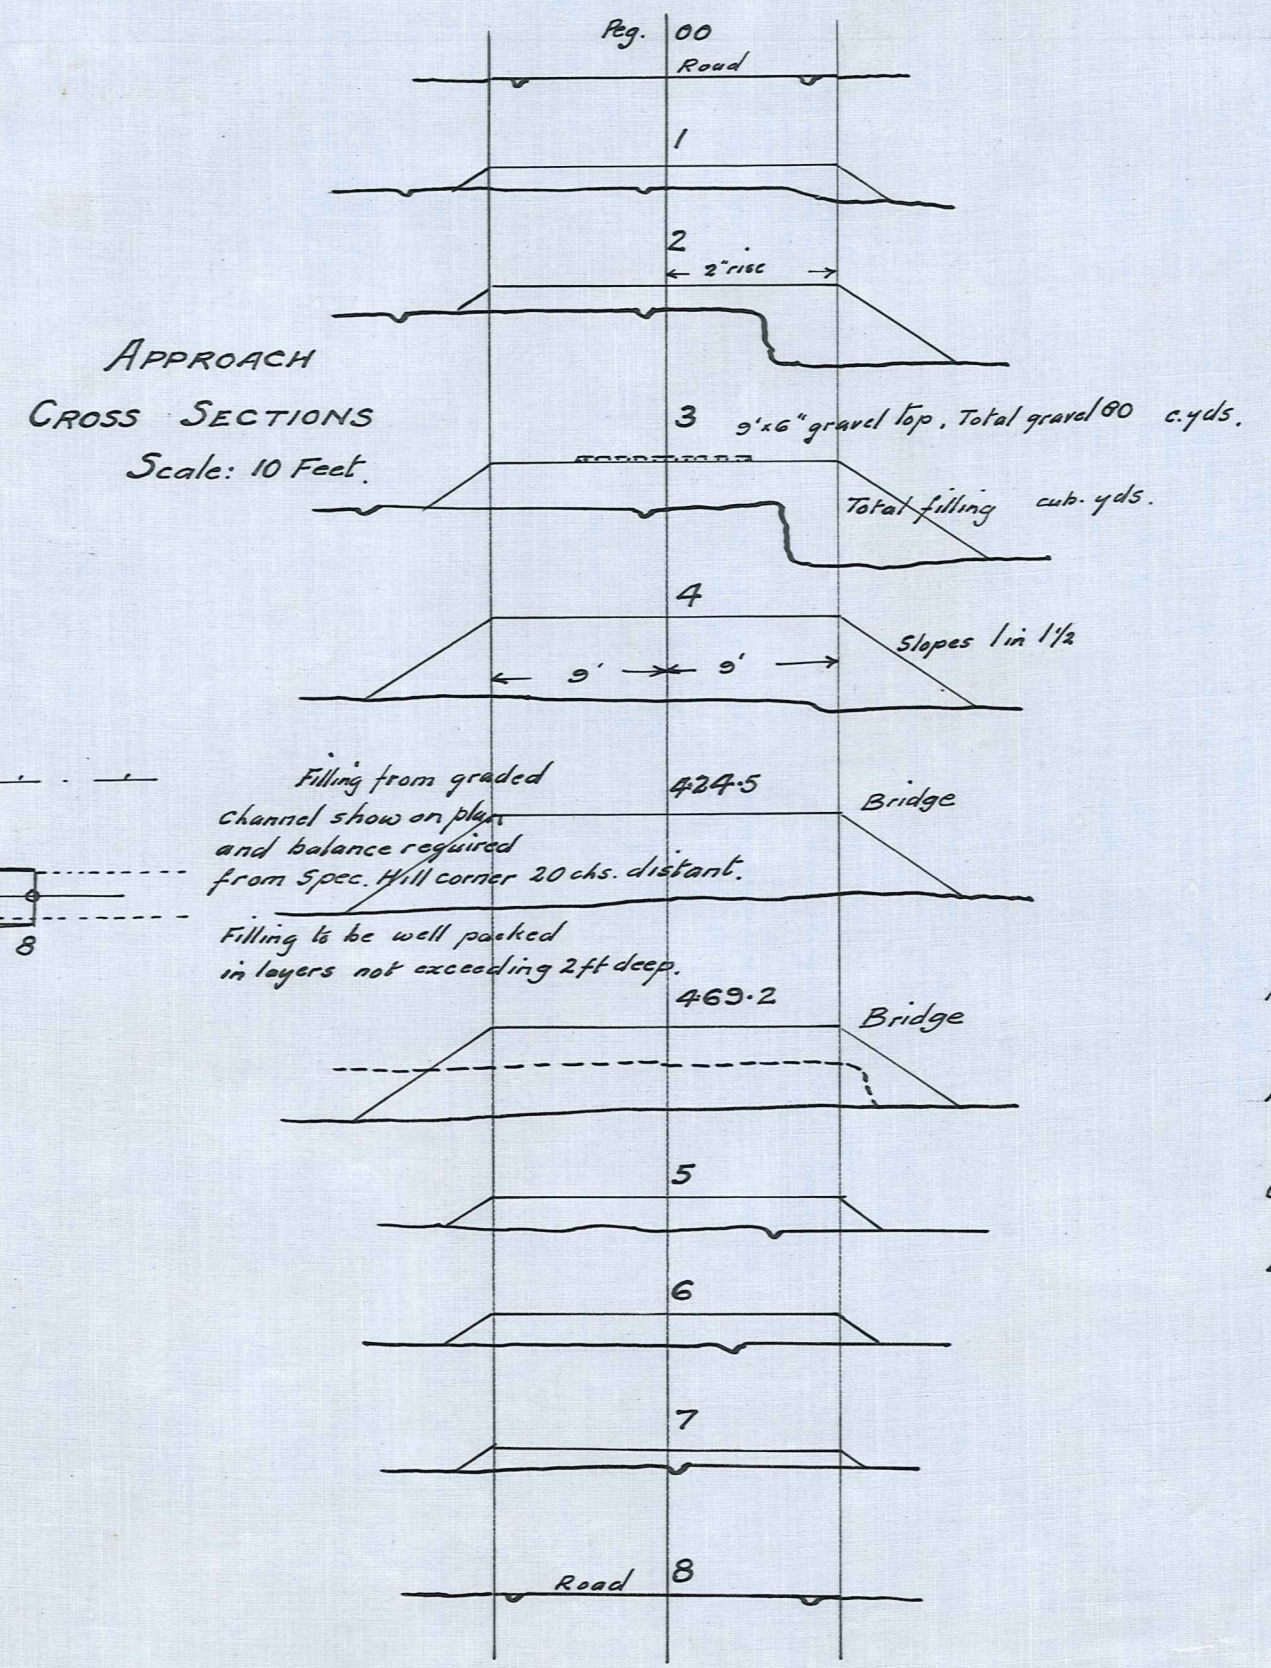 Peg. 00
Road
1
2
2" rise
APPROACH
CROSS SECTIONS
Scale: 10 Feet.
3 9'x6" gravel top. Total gravel 80 c.yds.
Total filling cub. yds.
4
Slopes 1 in 1½
9' 9'
Filling from graded
channel show on plan
and balance required
from Spec. Hill corner 20 chs. distant.
424.5 Bridge
Filling to be well packed
in layers not exceeding 2ft deep.
8
469.2 Bridge
5
6
7
Road 8